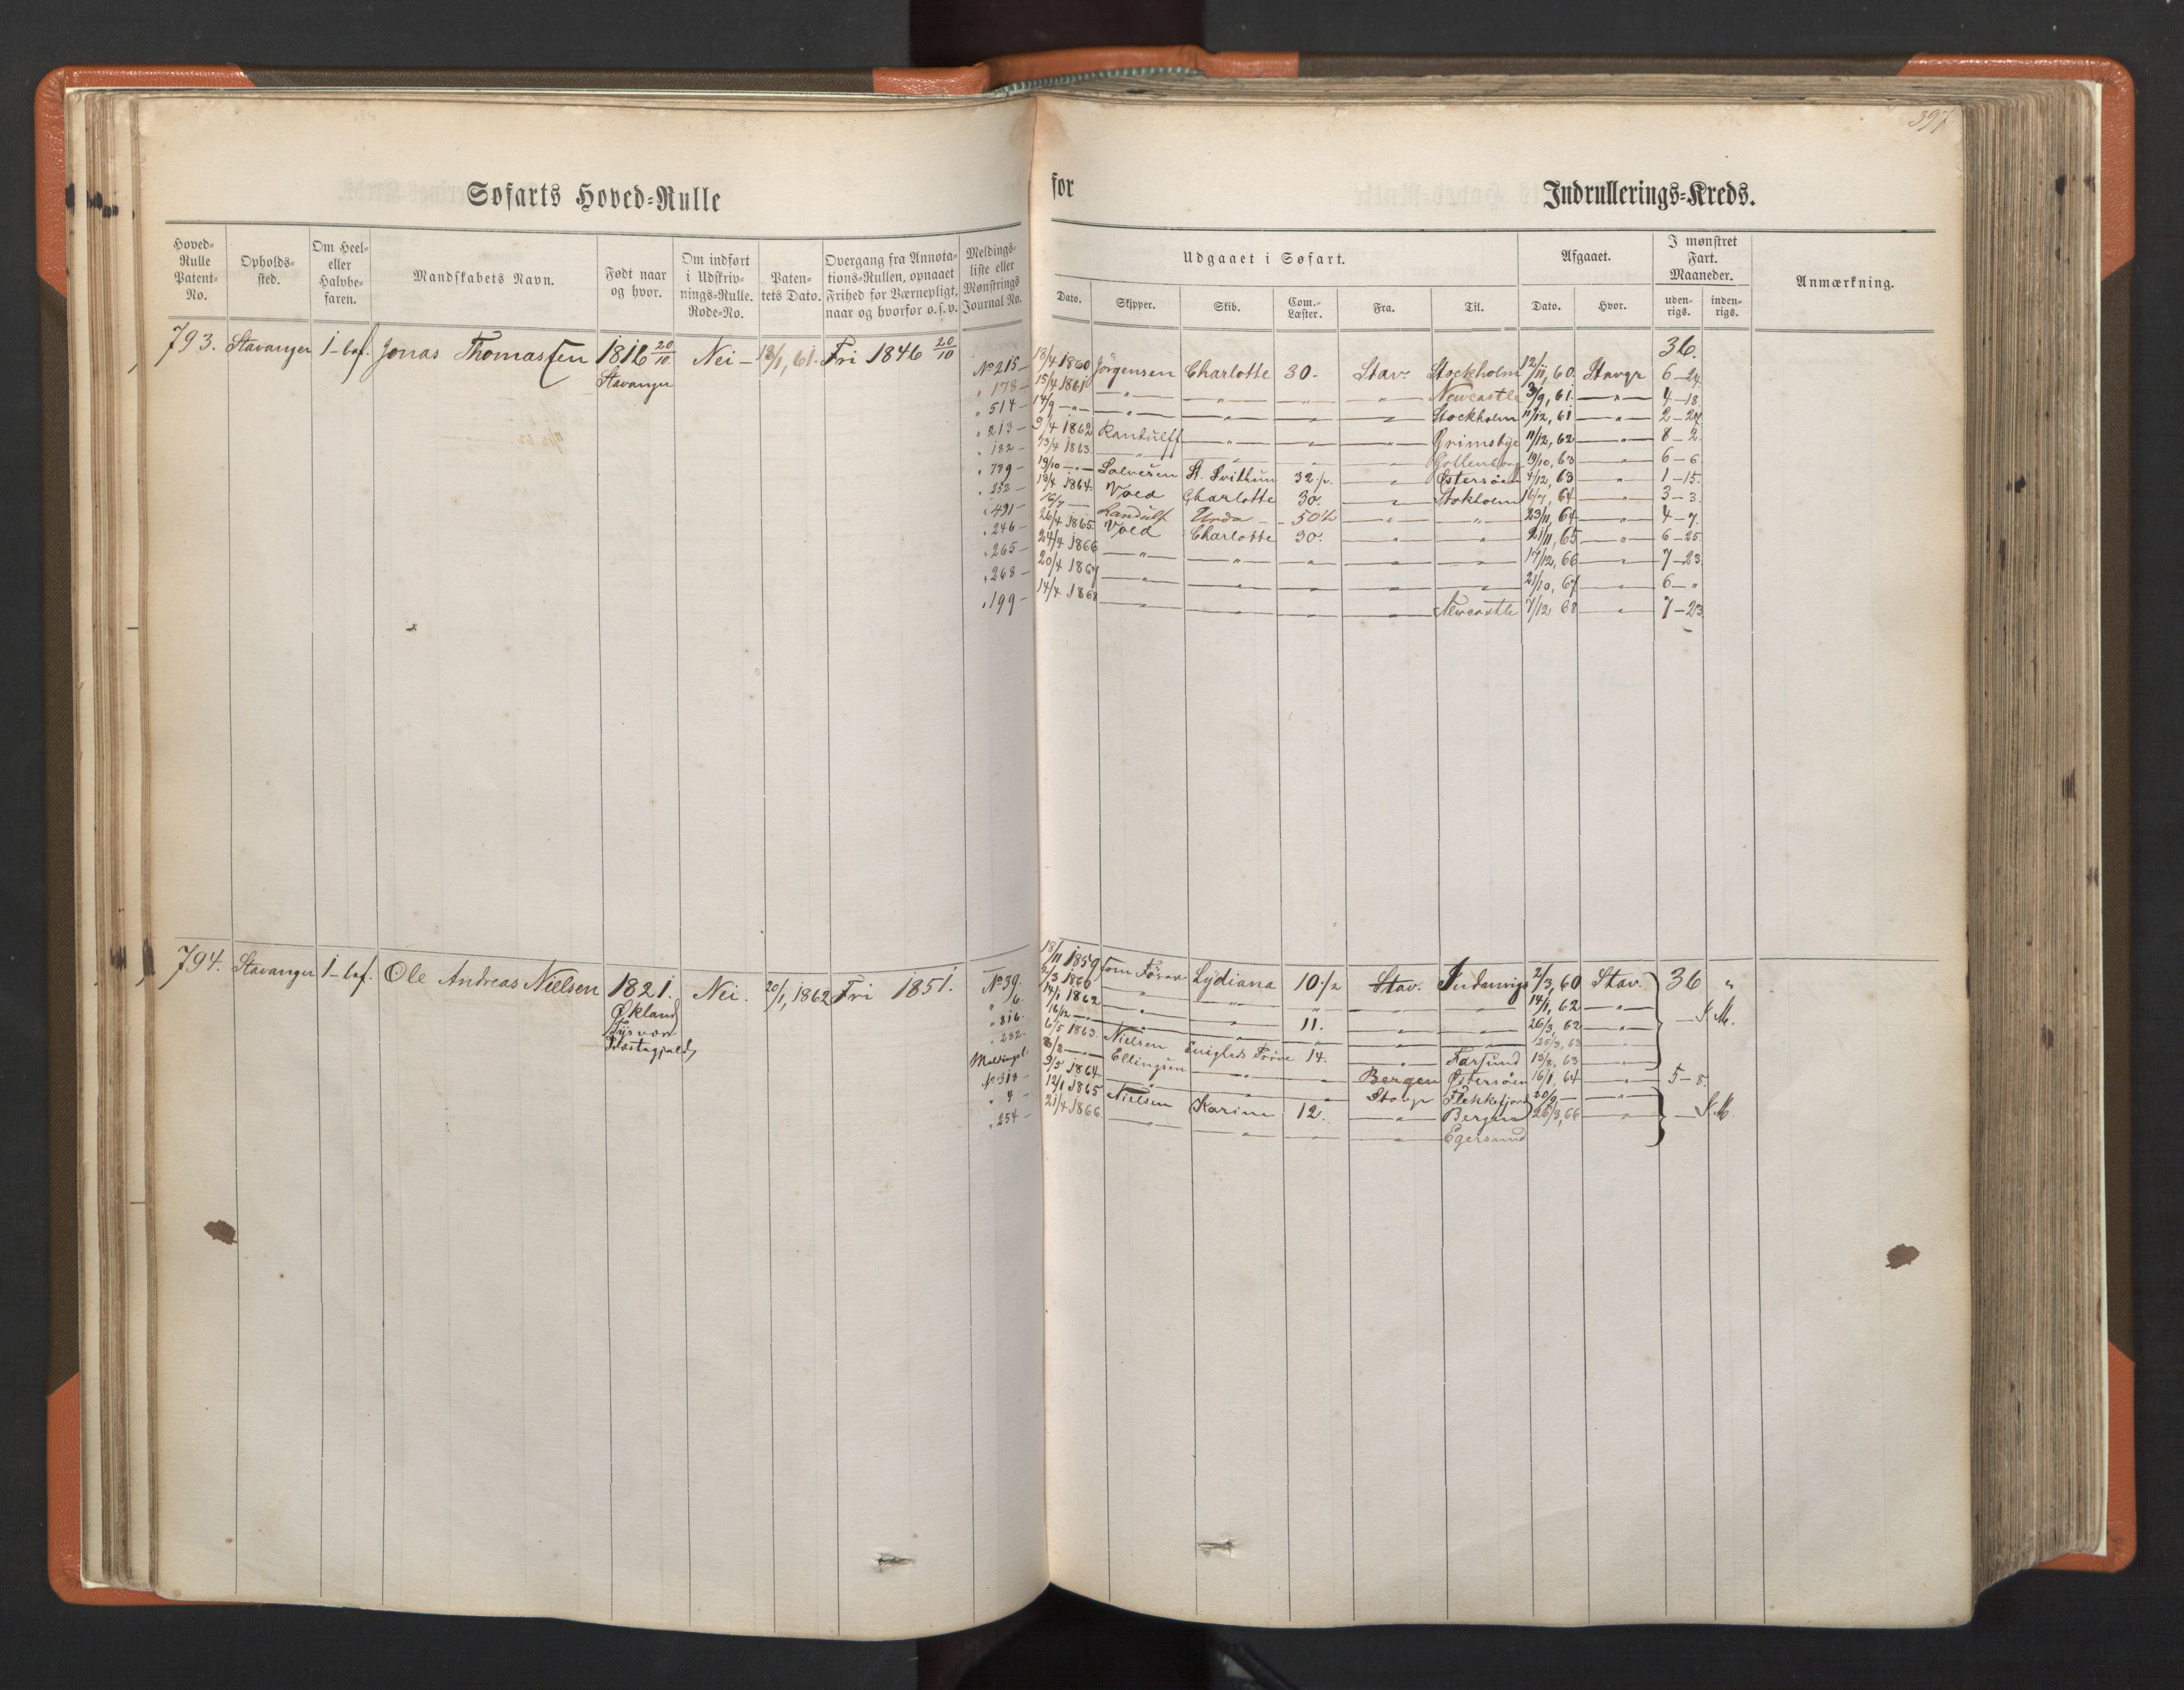 397
Søfarts Hoved=Rulle
for Indrullerings=Kreds.
Hoved=Rulle Patent=No.
Opholds=sted.
Om Heel= eller Halvbe=faren.
Mandskabets Navn.
Født naar og hvor.
Om indført i Udskriv=nings=Rulle. Rode=No.
Paten=tets Dato.
Overgang fra Annota=tions=Rullen, opnaaet Frihed for Værnepligt, naar og hvorfor o. s. v.
Meldings=liste eller Mønstrings Journal No.
Udgaaet i Søfart.
Dato. Skipper. Skib. Com.=Læster. Fra. Til.
Afgaaet.
Dato. Hvor.
I mønstret Fart. Maaneder.
uden=rigs. inden=rigs.
Anmærkning.
793. Stavanger 1-bef. Jonas Thomassen 1816 20/10. Nei - 18/1, 61. Fri 1846 20/10
Stavanger
36.
No 215 - 18/4 1860 Jörgensen Charlotte 30. Stav. Stockholm 12/11, 60. Stavgr 6-24
" 178 - 15/4 1861 — " — — " — — " — — " — Newcastle 3/9, 61. — " — 4-18
" 514 - 14/9 — " — — " — — " — — " — — " — Stockholm 11/12, 61 — " — 2-27
" 213 - 9/4 1862 Randulff — " — — " — — " — Grimsbye 11/12, 62 — " — 8-2.
" 182 - 13/4 1863. — " — — " — — " — — " — Gottenborg 19/10, 63 — " — 6-6
" 789 - 19/10 — " — Salvesen St. Svithun 32 1/2. — " — Østersöen 4/12, 63 — " — 1-15.
" 252 - 13/4 1864. Vold Charlotte 30. — " — Stokholm 16/7, 64 — " — 3-3.
" 491 - 16/7 — Randulf Unda - 50 1/2 — " — — " — 23/11, 64 — " — 4-7.
" 246 - 26/4 1865. Vold Charlotte 30. — " — — " — 21/11, 65 — " — 6-25
" 265 - 24/4 1866 — " — — " — — " — — " — — " — 17/12, 66 — " — 7-23
" 268 - 20/4 1867 — " — — " — — " — — " — — " — 21/10, 67 — " — 6-"
" 199 - 14/4 1868 — " — — " — — " — — " — Newcastle 7/12 68 — " — 7-23
794. Stavanger 1-bef. Ole Andreas Nielsen 1821. Nei. 20/1, 1862 Fri 1851.
Økland
Tysvær
Præstegjeld
No 39. 18/11 1859 som Förer Lydiana 10 1/2 Stav. Indenrigs 2/3, 60 Stav. 36 "
" 6. 2/3 1860 — " — — " — " — " — — " — 14/1, 62 — " —
" 816. 14/1 1862 — " — — " — 11. — " — — " — 26/3, 62 — " — K.M.
" 282. 16/12 — " — — " — — " — — " — 25/3, 63 — " —
6/5 1863. Nielsen Enighets Prøve 14. — " — Farsund 13/8, 63 — " —
8/8 — " — Ellingsen — " — — " — Bergen Østersöen 16/1, 64 — " — 5-8.
No 318 - 9/5 1864. — " — — " — — " — Stavgr Flekkefjord 20/9 — — " —
" 4 - 12/1 1865 Nielsen Karine 12. — " — Bergen 26/3, 66 — " — K.M.
" 254 - 21/4 1866. — " — — " — — " — — " — Egersund